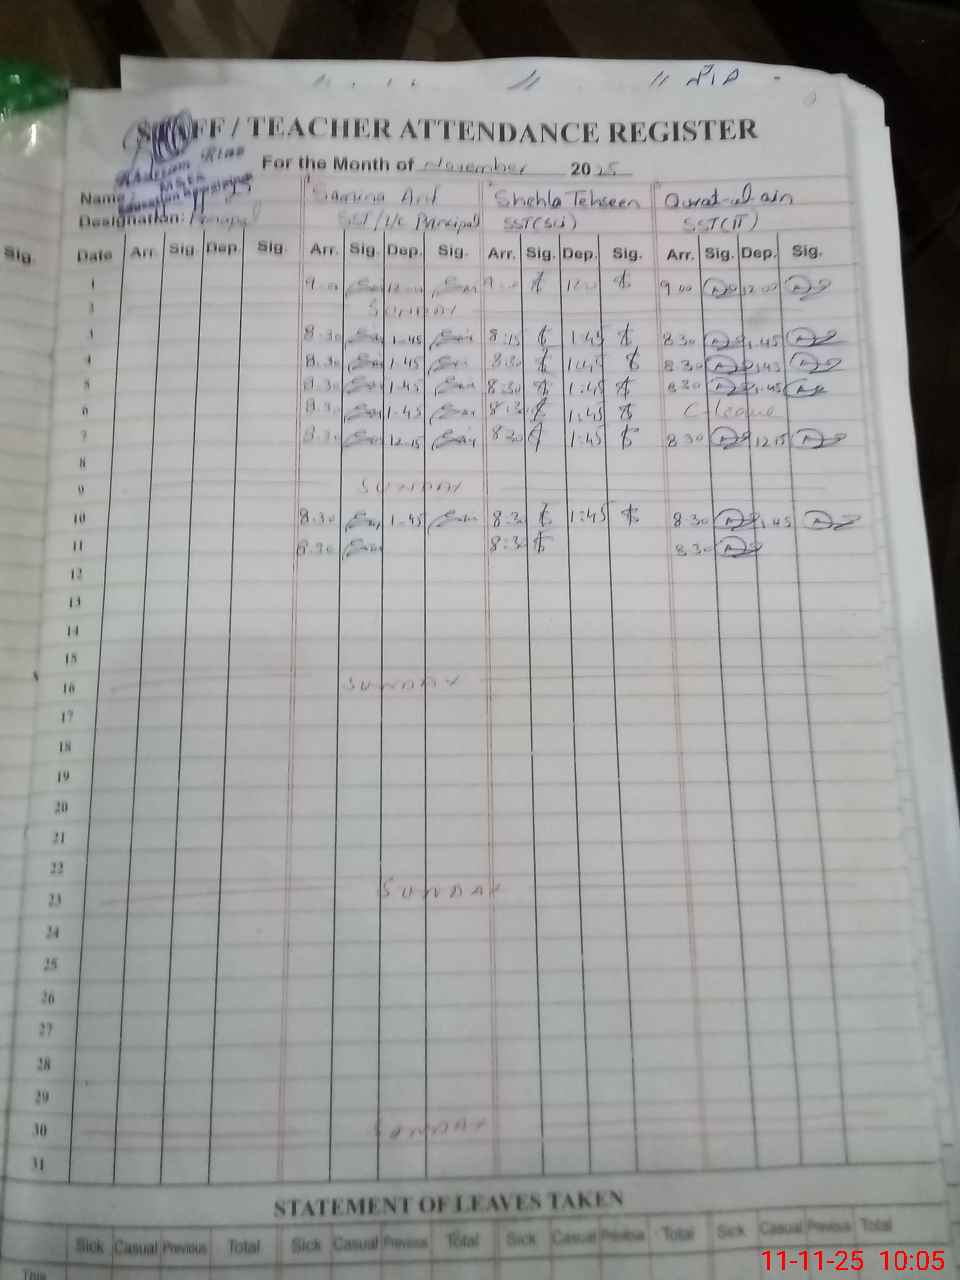 STAFF / TEACHER ATTENDANCE REGISTER
For the Month of November 2025
Name: Samina Arif Shehla Tehseen Qurat-ul-ain
Designation: Principal SST/I/c Principal SST(Sci) SST(IT)
Sig. Date Arr. Sig. Dep. Sig. Arr. Sig. Dep. Sig. Arr. Sig. Dep. Sig. Arr. Sig. Dep. Sig.
1 9.00 12.00 9.00 12.00 9.00 12.00
2 SUNDAY
3 8.30 1.45 8:15 1:45 8.30 1.45
4 8.30 1.45 8:30 1:45 8.30 1.45
5 8.30 1.45 8:30 1:45 8.30 1.45
6 8.30 1.45 8:30 1:45 C-leave
7 8.30 12.15 8:30 1:45 8.30 12.15
8
9 SUNDAY
10 8.30 1.45 8:30 1:45 8.30 1.45
11 8.30 8:30 8.30
12
13
14
15
16 SUNDAY
17
18
19
20
21
22
23 SUNDAY
24
25
26
27
28
29
30 SUNDAY
31
STATEMENT OF LEAVES TAKEN
Sick Casual Previous Total Sick Casual Previous Total Sick Casual Previous Total Sick Casual Previous Total
This
11-11-25 10:05